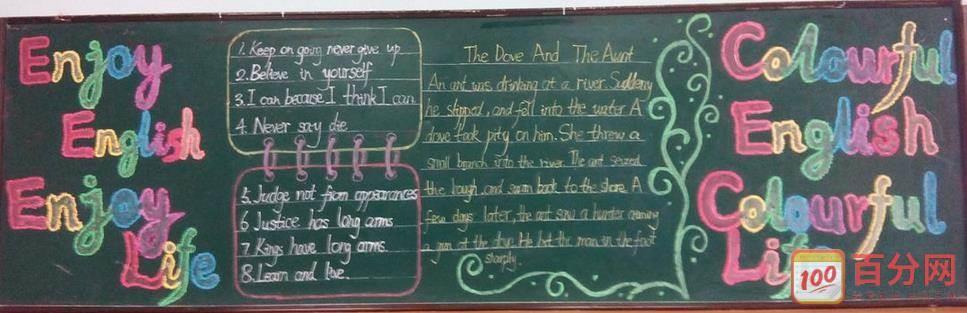 Enjoy
English
Enjoy
Life
1. Keep on going never give up
2. Believe in yourself
3. I can because I think I can
4. Never say die
5. Judge not from appearances
6 Justice has long arms
7. Kings have long arms.
8. Learn and live.
The Dove And The Aunt
An ant was drinking at a river. Suddenly
he slipped, and fell into the water A
dove took pity on him. She threw a
small branch into the river. The ant seized
the bough and swam back to the shore A
few days later, the ant saw a hunter aiming
a gun at the dove. He bit the man in the foot
sharply.
Colourful
English
Colourful
Life
100
百分网